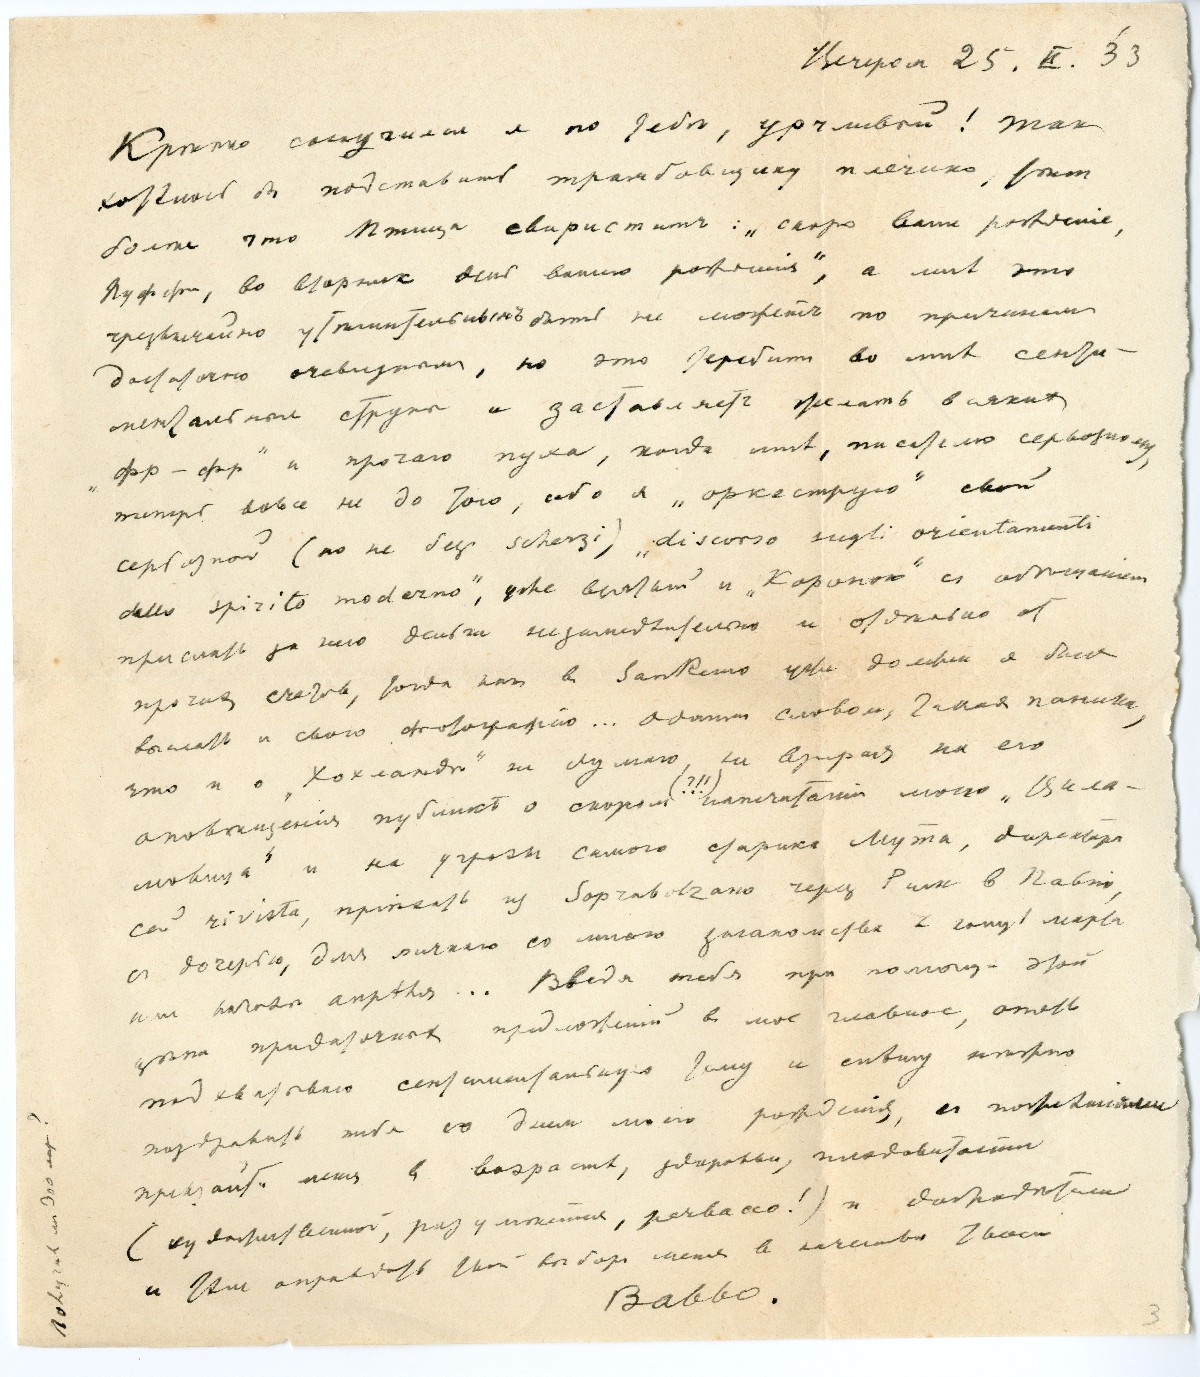 Вечером 25. II. 33
Крепко соскучился я по тебе, урчливый! Так
хотелось бы подставить трамбовщику плечико, тем
более что Птица свиристит: „скоро ваше рождение,
Пуффи, во вторник день вашего рождения“, а мне это
чрезвычайно утешительным быть не может по причинам
достаточно очевидным, но это теребит во мне сенти-
ментальные струны и заставляет желать всяких
„фр-фр“ и прочаго пуха, когда мне, писателю серьозному,
теперь вовсе не до того, ибо я „оркеструю“ свой
серьозной (но не без scherzi) „discorso sugli orientamenti
dello spirito moderno“, уже взятый и „Короной“ с обещанием
прислать за него деньги незамедлительно и отдельно от
прочих счетов, тогда как в SanRemo уже должен я был
выслать и свою фотографию... Одним словом, такая паника,
что и о „Хохландъ“ не думаю, не взирая на его
оповещения публике о скором (?!!) напечатании моего „Вила-
мовица“ и на угрозы самого старика Мута, директора
сей rivista, приехать из Soprabolzano через Рим в Павию,
с дочерью, для личнаго со мною знакомства к концу марта
или началу апреля... Введя тебя при помощи этой
цепи придаточных предложений в мое главное, опять
подхватываю сентиментальную тему и спешу
поздравить тебя со днем моего рождения, с пожеланиями
превзойти меня в возрасте, здоровьи, плодовитости
(художественной, разумеется, parbleu!) и добродетели
и тем оправдать твой выбор меня в качестве твоего
Babbo.
Получил ли 300 лир?
3